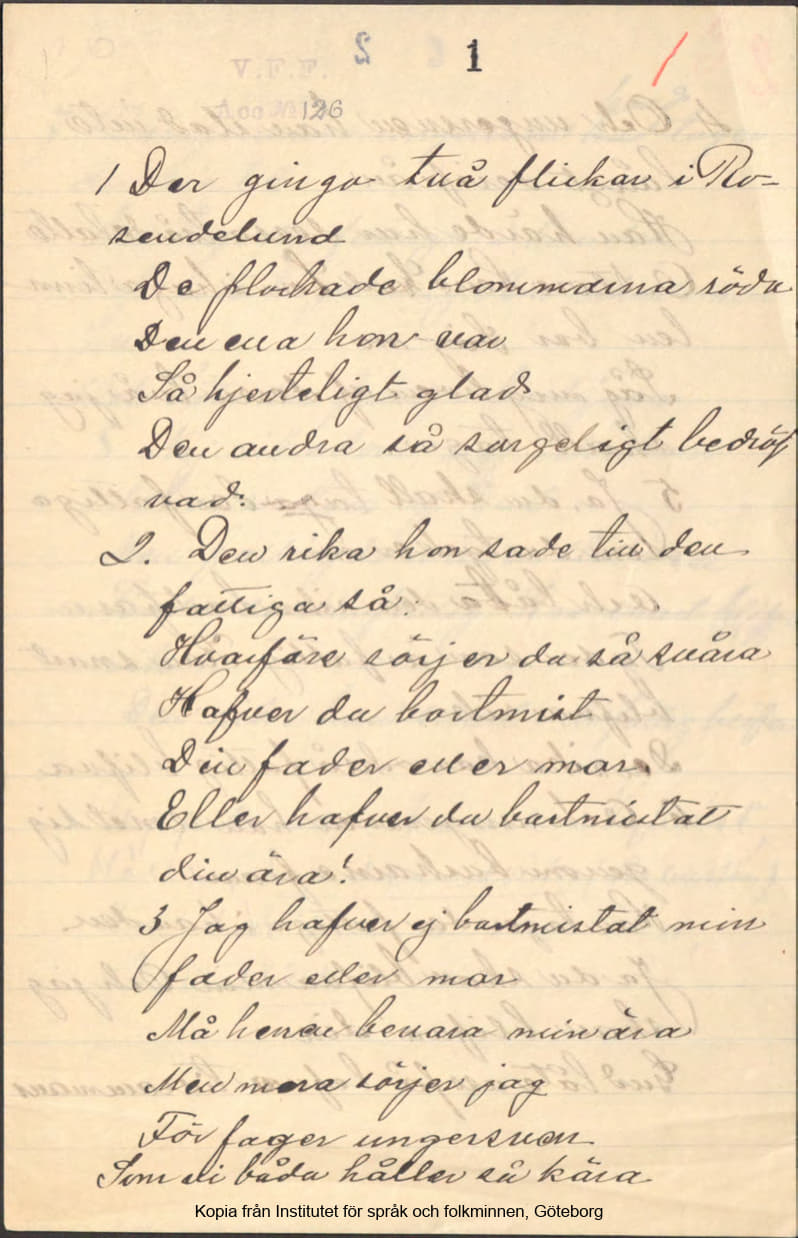 V.F.F. 2 1 /
Acc № 126
1 Der gingo två flickor i Ro-
sendelund
De plockade blommorna röda
Den ena hon var
Så hjerteligt glad
Den andra så sorgeligt bedröf
vad.
2. Den rika hon sade till den
fattiga så:
Hvarföre sörjer du så svåra
Hafver du bortmist
Din fader eller mor
Eller hafver du bortmistat
din ära!
3 Jag hafver ej bortmistat min
fader eller mor
Må herren bevara min ära
Men mera sörjer jag
För fager ungersven
Som vi båda håller så kära
Kopia från Institutet för språk och folkminnen, Göteborg